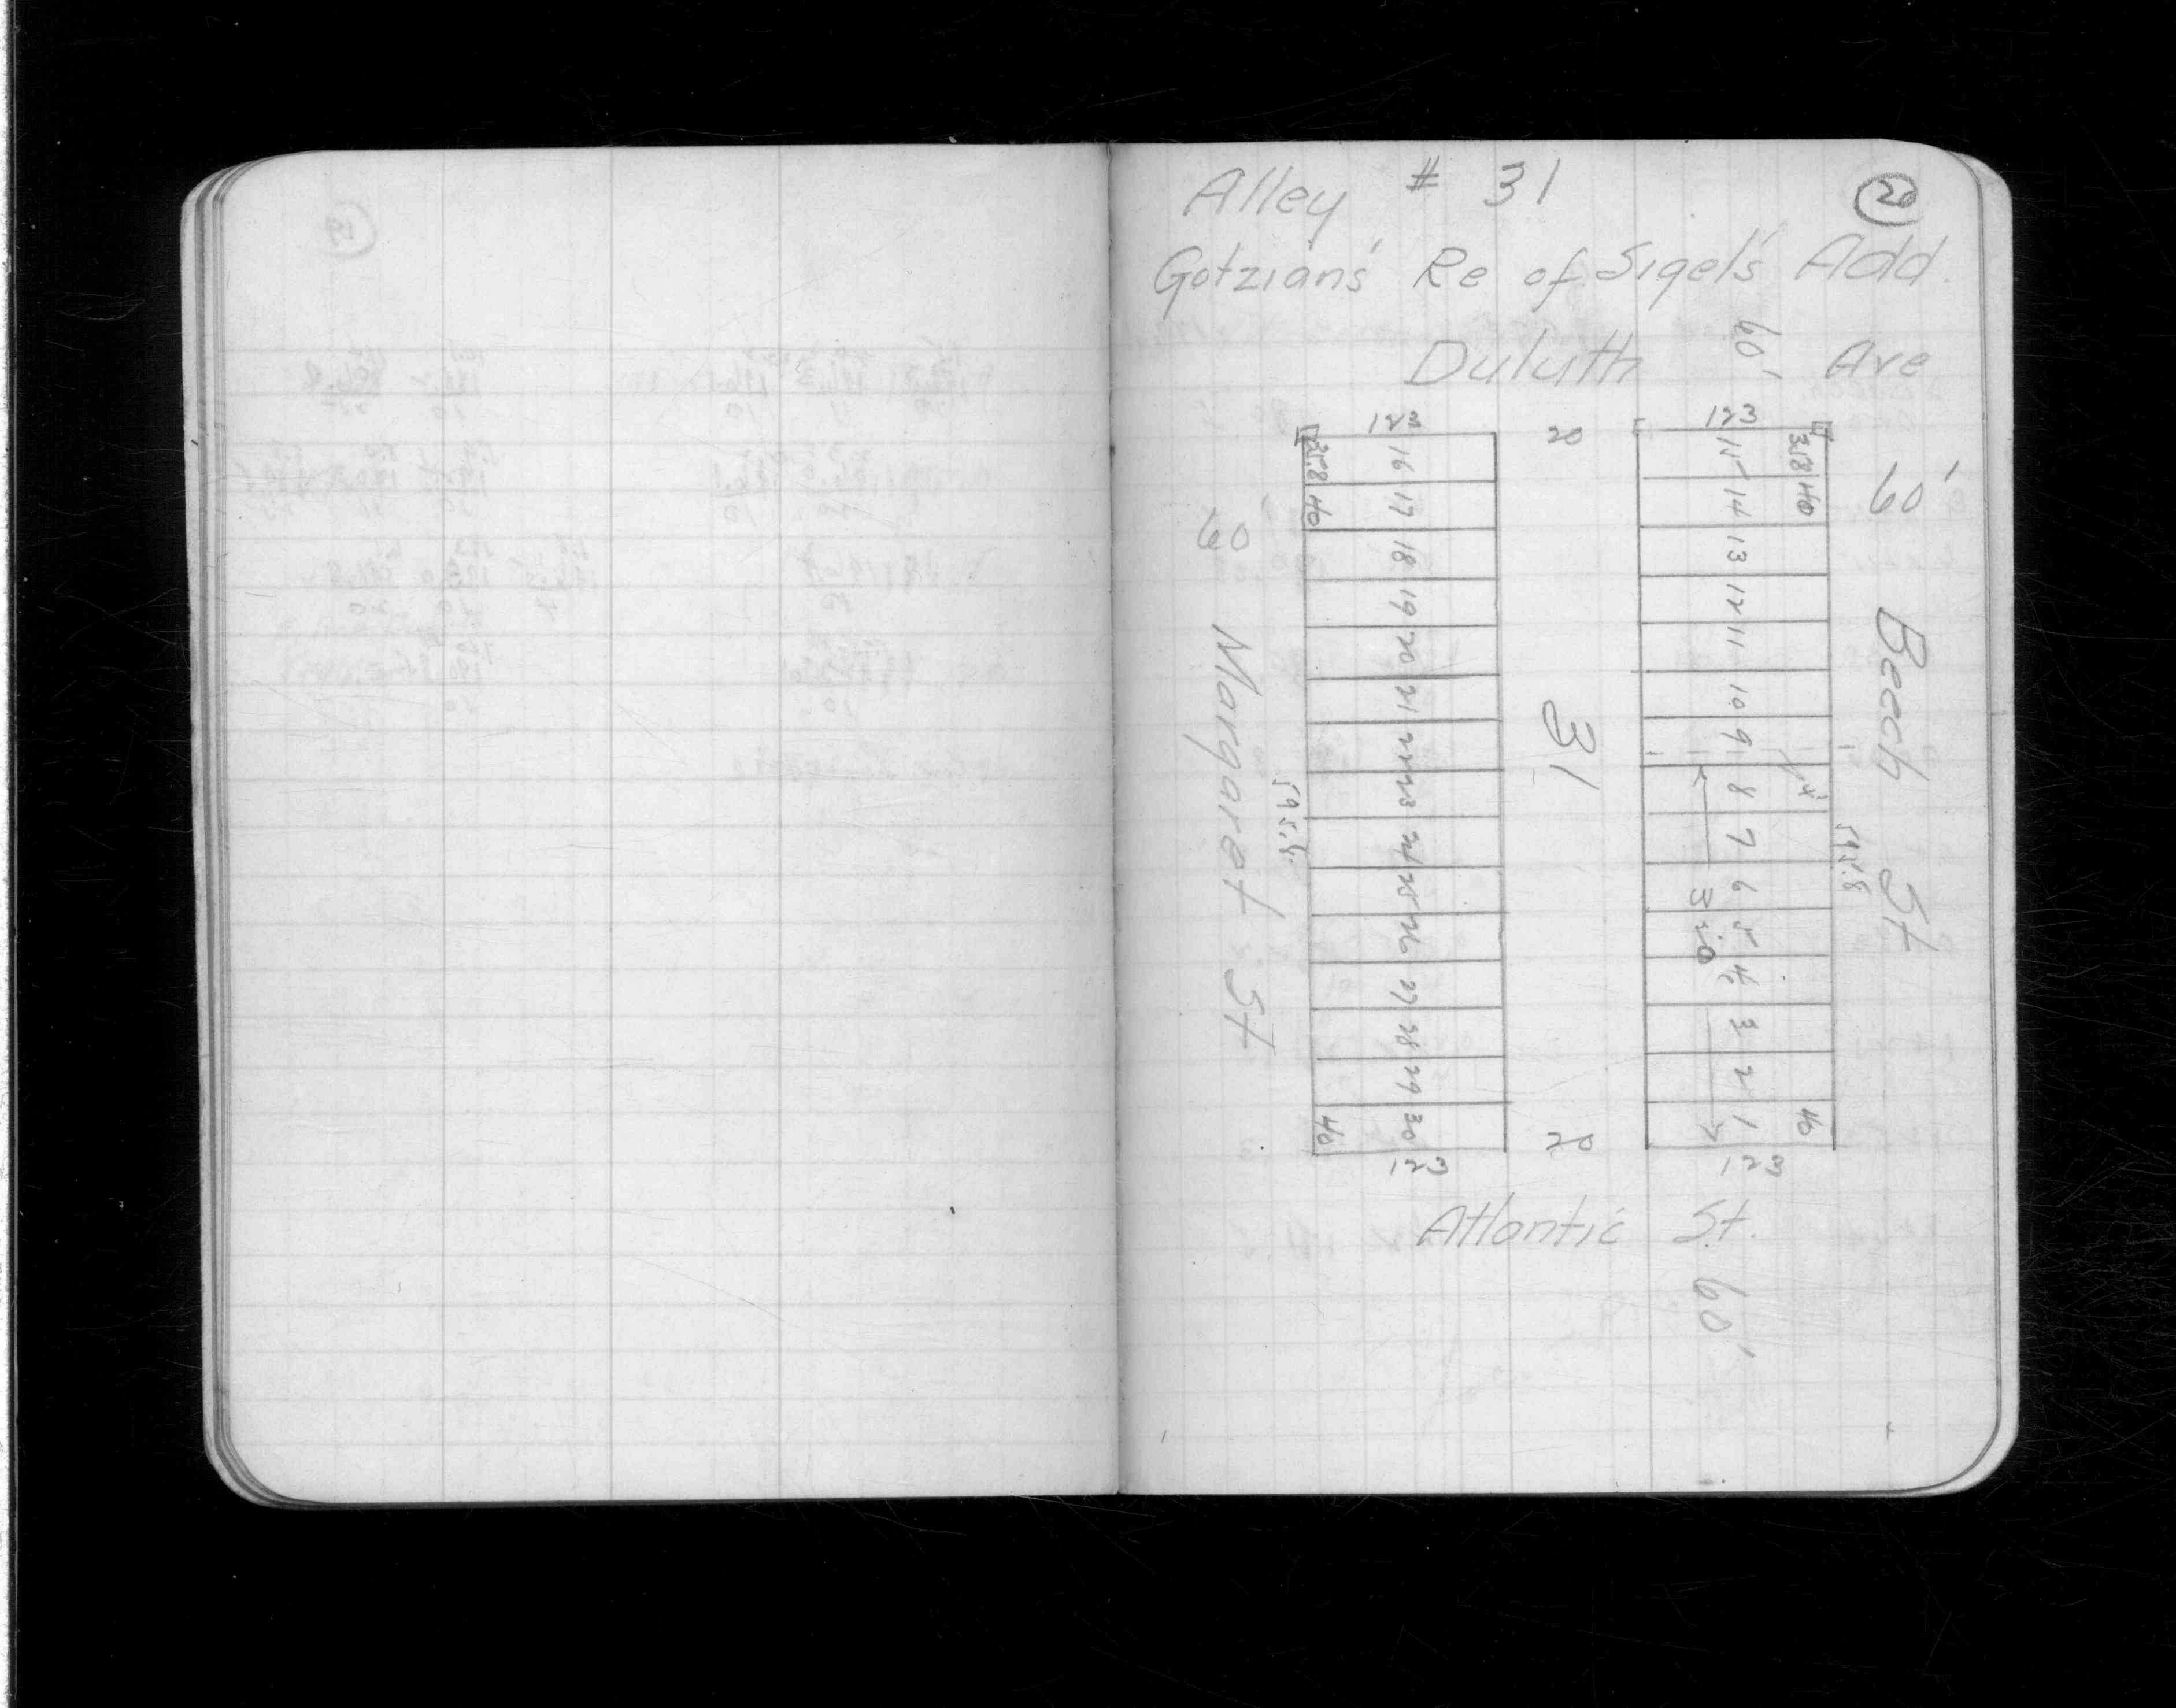 Alley # 31
20
Gotzians' Re of Sigel's Add.
Duluth 60' Ave
123 20 123
31.8 16 15 31.8
40 17 14 40
60' 18 13 60'
19 12
20 11
21 10
22 9
23 8
24 7
25 6
26 5
27 4
28 3
29 2
40 30 1 40
31
320
Margaret St
Beech St
591.8
123 20 123
Atlantic St.
60'